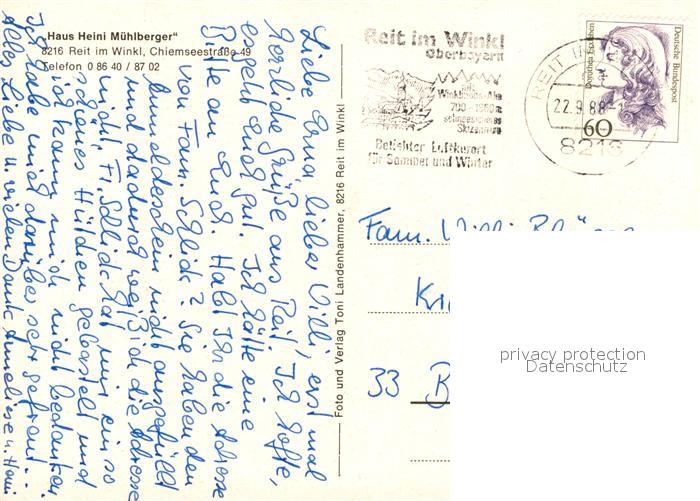 „Haus Heini Mühlberger“
8216 Reit im Winkl, Chiemseestraße 49
Telefon 0 86 40 / 87 02
Liebe Erna, lieber Willi, erst mal
herzliche Grüße aus Reit. Ich hoffe,
es geht Euch gut. Ich hätte eine
Bitte an Euch. Habt Ihr die Adresse
von Fam. Schlick? Sie haben den
Meldeschein nicht ausgefüllt
und dadurch weiß ich die Adresse
nicht. Fr. Schlick hat mir ein so
schönes Hütchen gebastelt und
ich kann mich nicht bedanken
Ich habe mich darüber sehr gefreut...
Alles Liebe u. vielen Dank Anneliese u. Heini
Foto und Verlag Toni Landenhammer, 8216 Reit im Winkl
Reit im Winkl
Oberbayern
Winklmoos-Alm
schneesicheres
Skizentrum
Beliebter Luftkurort
für Sommer und Winter
REIT IM
22.9.88
8216
Deutsche Bundespost
Dorothea Erxleben
60
Fam. Willi
33 B
privacy protection
Datenschutz